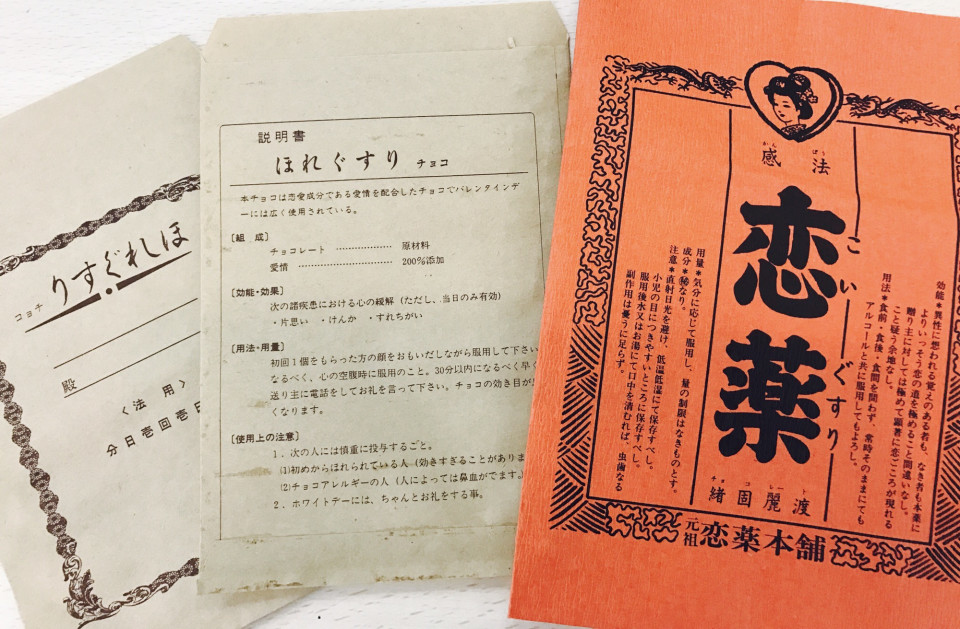 ほれぐすり チョコ
殿
〈用法〉
日壱回壱日分
説明書
ほれぐすり チョコ
本チョコは恋愛成分である愛情を配合したチョコでバレンタインデ
ーには広く使用されている。
〔組 成〕
チョコレート ………………… 原材料
愛情 ………………………… 200%添加
〔効能・効果〕
次の諸疾患における心の緩解（ただし、当日のみ有効）
・片思い ・けんか ・すれちがい
〔用法・用量〕
初回1個をもらった方の顔をおもいだしながら服用して下さい
なるべく、心の空腹時に服用のこと。30分以内になるべく早く
送り主に電話をしてお礼を言って下さい。チョコの効き目が
くなります。
〔使用上の注意〕
1．次の人には慎重に投与するごと。
(1)初めからほれられている人（効きすぎることがありま
(2)チョコアレルギーの人（人によっては鼻血がでます。
2．ホワイトデーには、ちゃんとお礼をする事。
感法
かんぽう
効能＊異性に想われる覚えのある者も、なき者も本薬に
よりいっそう恋の道を極めること間違いなし。
贈り主に対しては極めて顕著に恋ごころが現れる
こと疑う余地なし。
用法＊食前・食後・食間を問わず、常時そのままにても
アルコールと共に服用してもよろし。
恋薬
こいぐすり
用量＊気分に応じて服用し、量の制限はなきものとす。
成分＊㊙なり。
注意＊直射日光を避け、低温低湿にて保存すべし。
小児の目につきやすいところに保存すべし。
服用後水又はお湯にて口中を清むれば、虫歯なる
副作用は憂うに足らず。
緒固麗渡
チョコレート
元祖 恋薬本舗